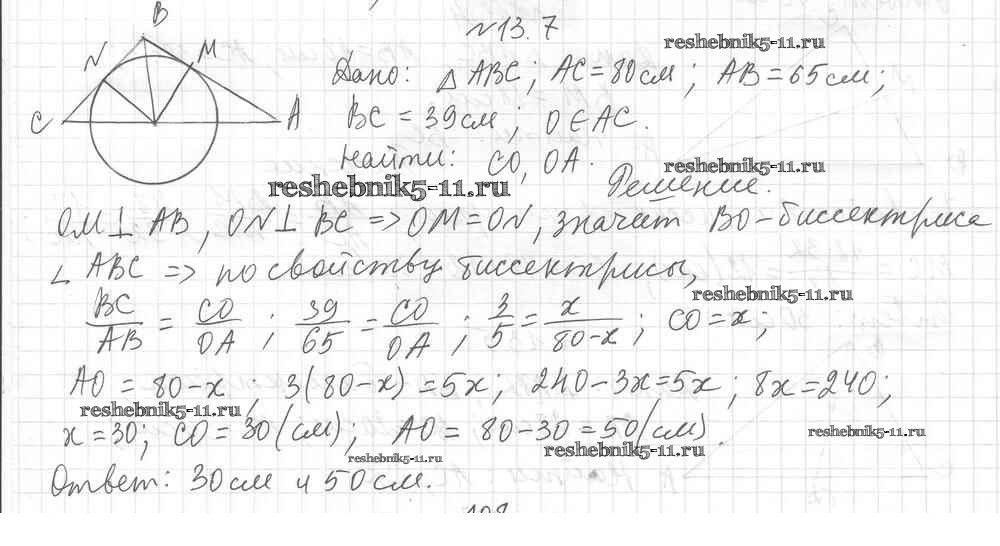 B
N13.7
N
M
reshebnik5-11.ru
Дано: △ ABC; AC = 80см; AB = 65см;
C
A
BC = 39см; O ∈ AC.
Найти: CO, OA.
reshebnik5-11.ru
reshebnik5-11.ru
Решение.
OM ⊥ AB, ON ⊥ BC => OM = ON, значит BO - биссектриса
∠ ABC => по свойству биссектрисы,
reshebnik5-11.ru
BC/AB = CO/OA; 39/65 = CO/OA; 3/5 = x/80-x; CO = x;
AO = 80-x; 3(80-x) = 5x; 240-3x=5x; 8x=240;
reshebnik5-11.ru
x = 30; CO = 30 (см); AO = 80-30 = 50 (см).
reshebnik5-11.ru
reshebnik5-11.ru
reshebnik5-11.ru
Ответ: 30см и 50см.